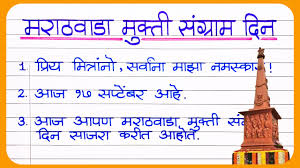 मराठवाडा मुक्ती संग्राम दिन
1. प्रिय मित्रांनो, सर्वांना माझा नमस्कार!
2. आज १७ सप्टेंबर आहे.
3. आज आपण मराठवाडा मुक्ती
दिन साजरा करीत आहोत.